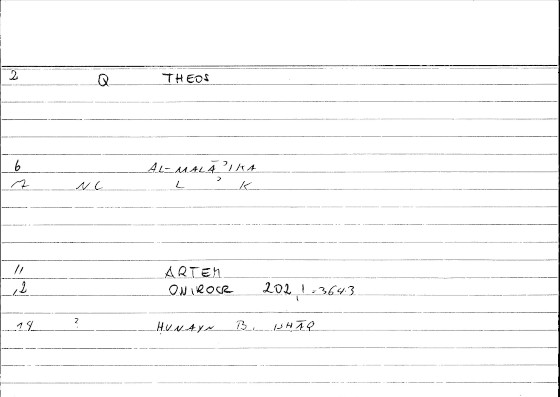 2 Q THEOS
6 AL-MALĀʾIKA
7 NC L ʾ K
11 ARTEM
12 ONIROCR 202,1-3643
14 ? ḤUNAYN B. ISḤĀQ